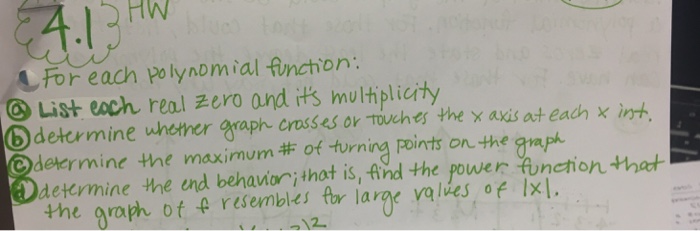 4.1 HW
For each polynomial function:
ⓐ List each real zero and it's multiplicity
ⓑ determine whether graph crosses or touches the x axis at each x int.
ⓒ determine the maximum # of turning points on the graph
ⓓ determine the end behavior; that is, find the power function that
the graph of f resembles for large values of |x|.